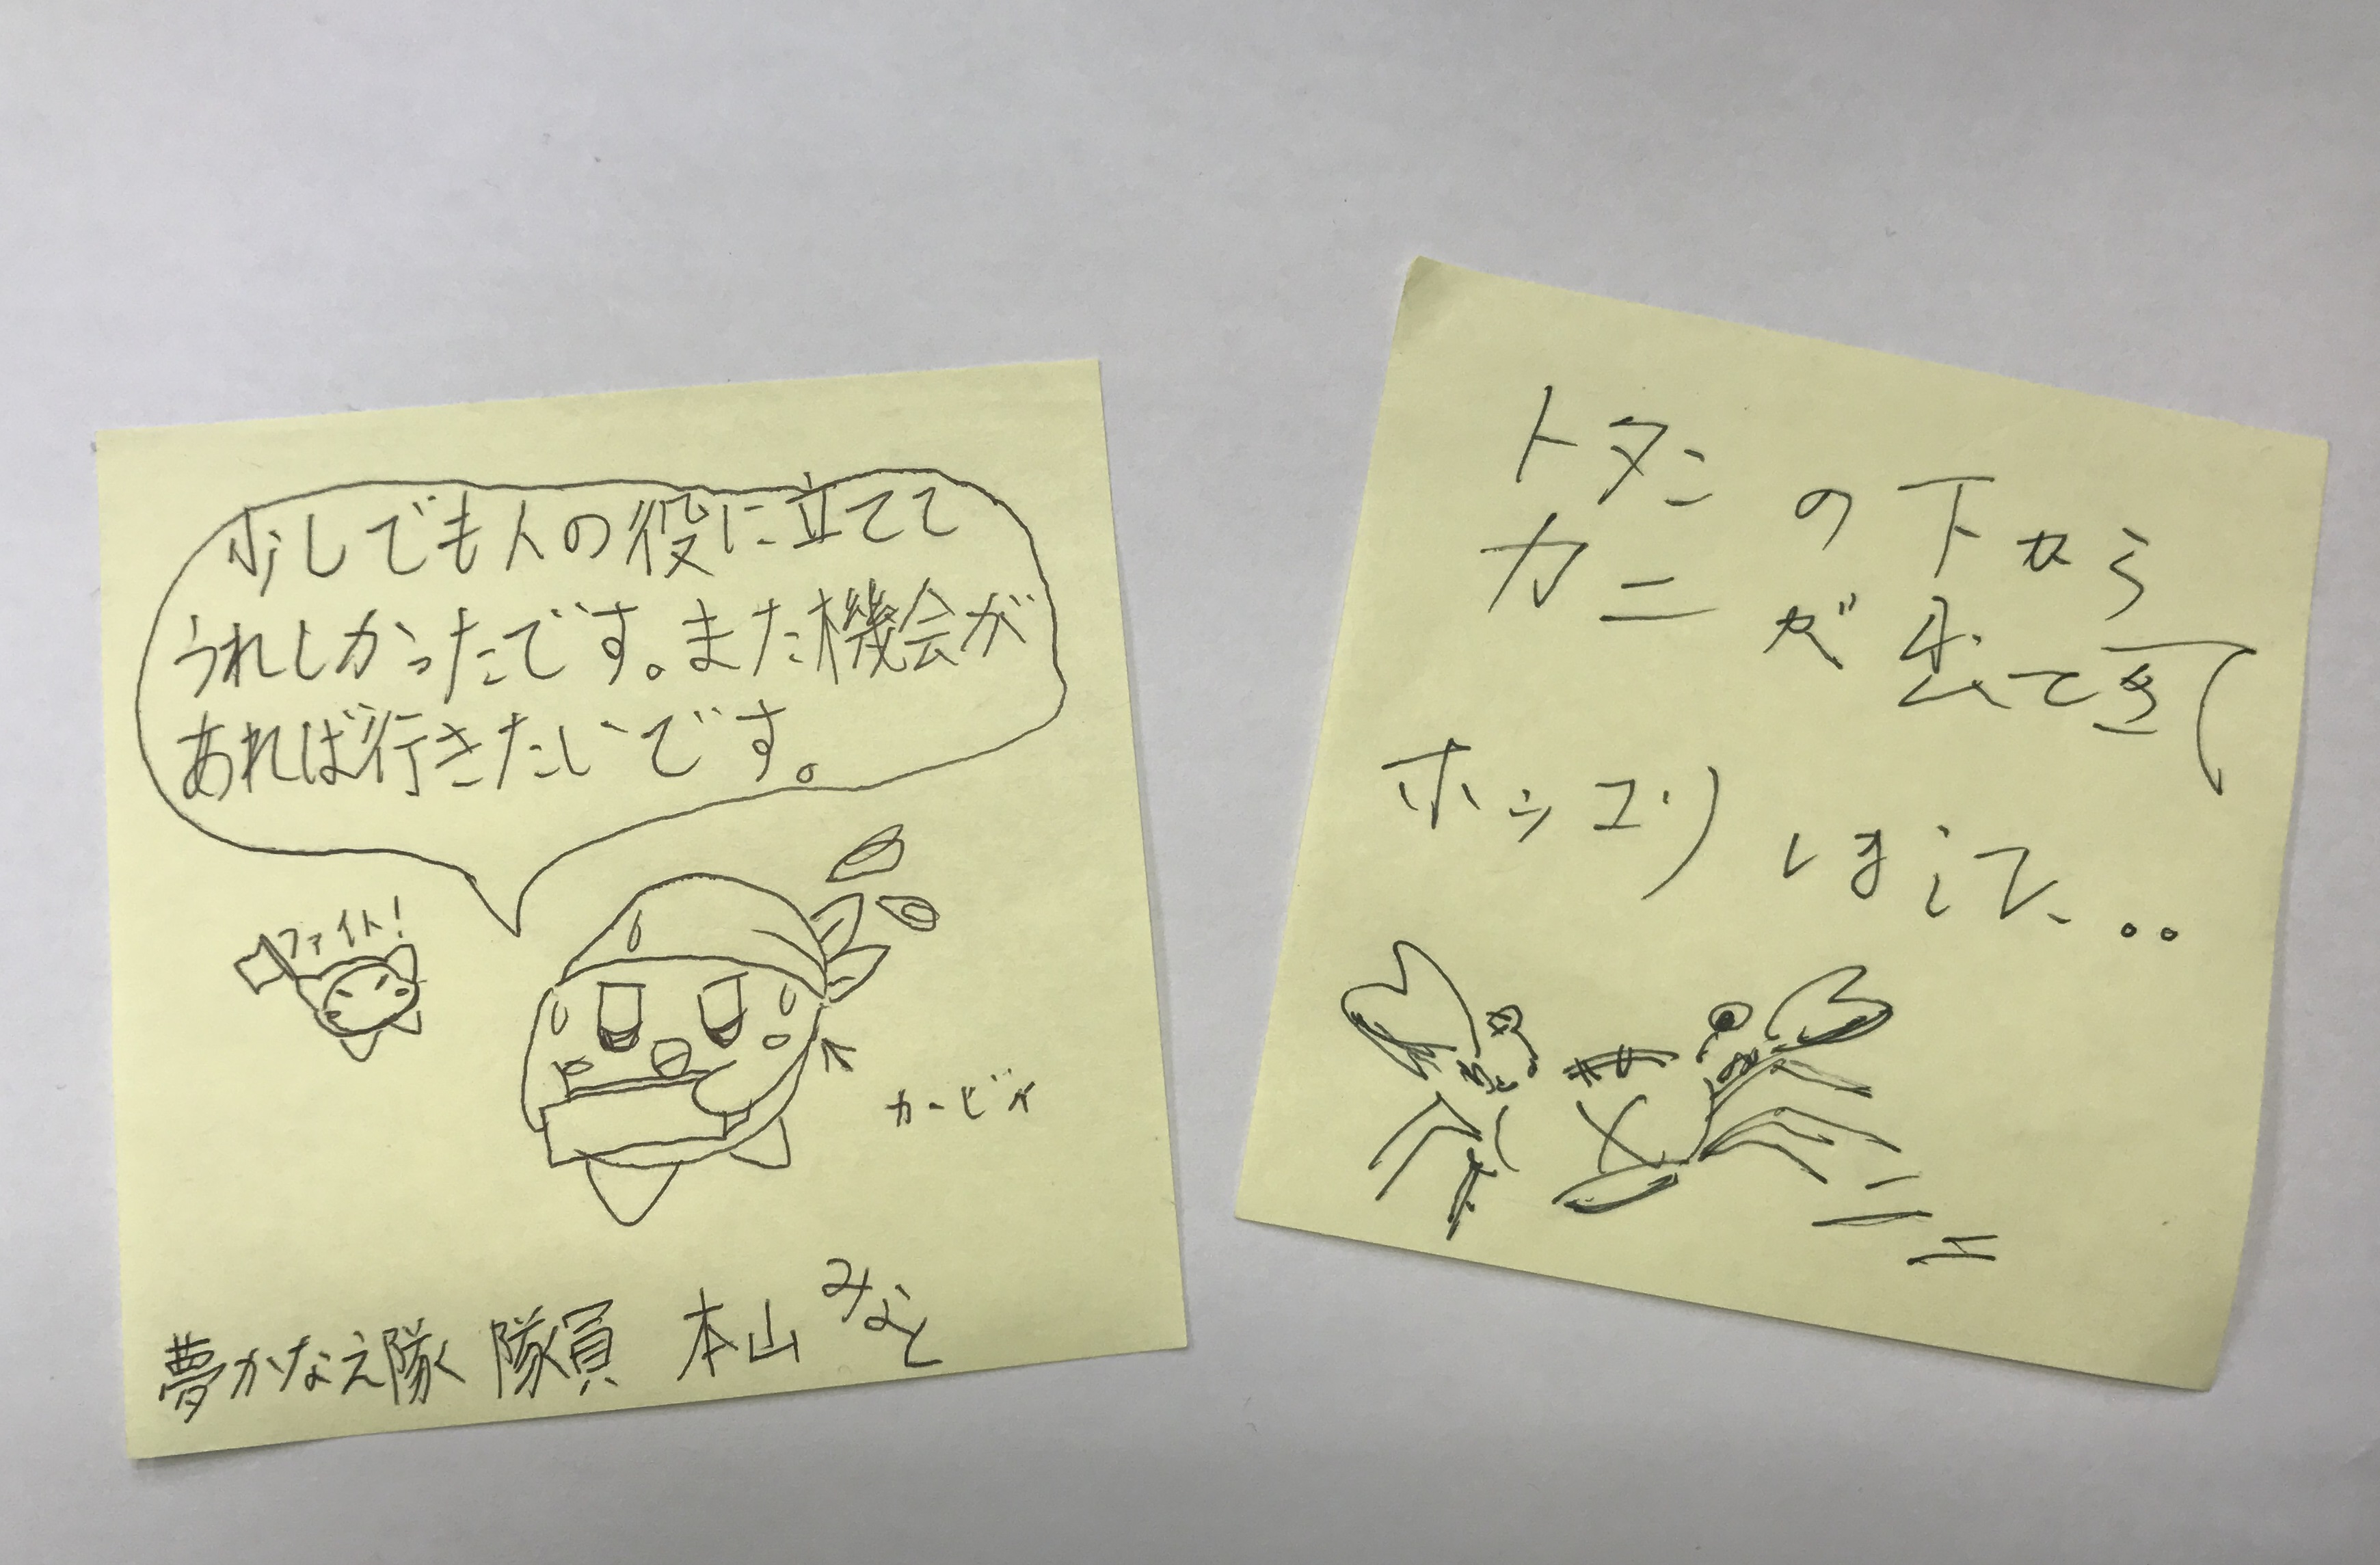 少しでも人の役に立てて
うれしかったです。また機会が
あれば行きたいです。
ファイト!
カービィ
夢かなえ隊 隊員 本山みなと
トタンの下から
カニが出てきて
ホッコリしまして...